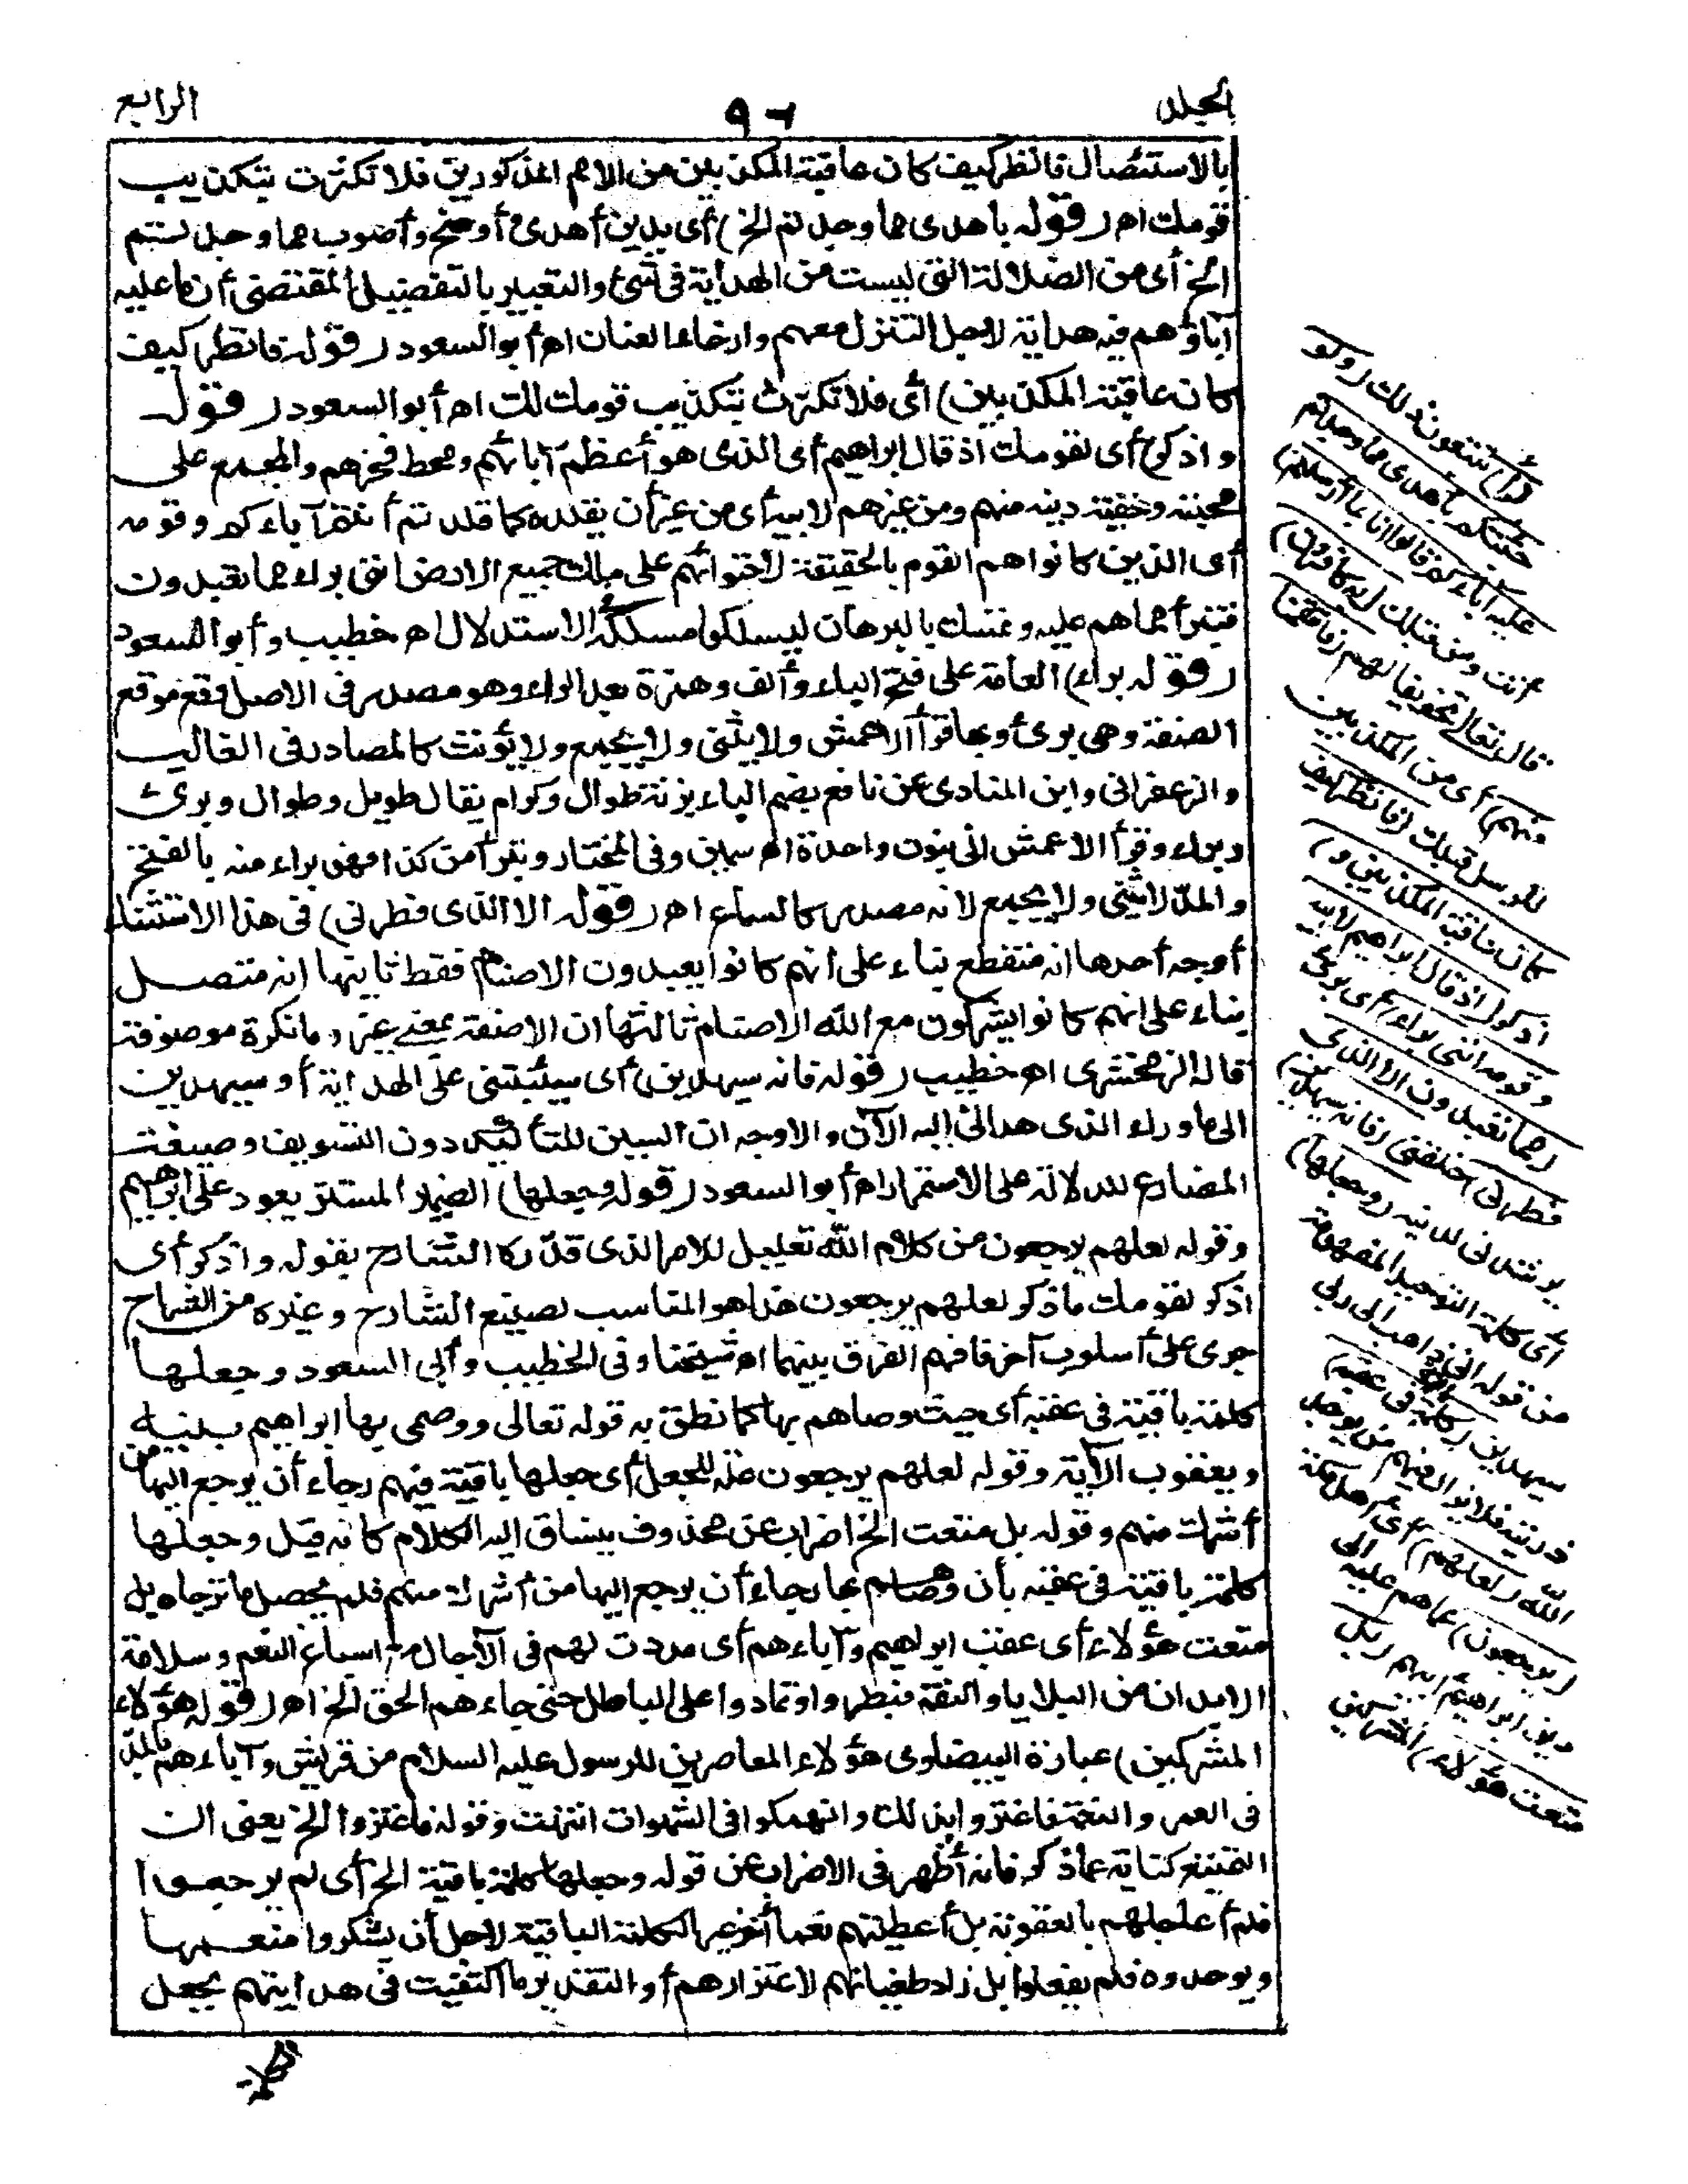 الجلد
٩٦
الرابع
بالاستئصال فانظر كيف كان عاقبة المكذبين من الامم المذكورين فلا تكترث بتكذيب
قومك اه (قوله بأهدى مما وجدتم الخ) أى بدين أهدى أوضح وأصوب مما وجدتم
الخ أى من الضلالة التى ليست من الهداية فى شئ والتعبير بالتفضيل المقتضى أن ما عليه
آباؤهم فيه هداية لاجل التنزل معهم وارخاء العنان اه أبو السعود (قوله فانظر كيف
كان عاقبة المكذبين) أى فلا تكترث بتكذيب قومك لك اه أبو السعود (قوله
واذكر) أى لقومك اذ قال ابراهيم أى الذى هو أعظم آبائهم ومحط فخرهم والمجمع على
محبته وحقية دينه منهم ومن غيرهم لابيه أى من غير أن يقلده كما قلدتم أنتم آباءكم وقومه
أى الذين كانوا هم القوم بالحقيقة لاحتوائهم على ملك جميع الارض اننى براء مما تعبدون
فتبرأ مما هم عليه وتمسك بالبرهان ليسلكوا مسلكه الاستدلال اه خطيب وأبو السعود
(قوله براء) العامة على فتح الباء وألف وهمزة بعد الراء وهو مصدر فى الاصل وقع موقع
الصفة وهى برئ وبها قرأ الاعمش ولا يثنى ولا يجمع ولا يؤنث كالمصادر فى الغالب
والزعفرانى وابن المنادى عن نافع بضم الباء بزنة طوال وكرام يقال طويل وطوال وبرئ
وبراء وقرأ الاعمش انى بنون واحدة اه سمين وفى المختار وتبرأ من كذا فهو براء منه بالفتح
والمد لا يثنى ولا يجمع لانه مصدر كالسماع اه (قوله الا الذى فطرنى) فى هذا الاستثناء
أوجه أحدها انه منقطع بناء على انهم كانوا يعبدون الاصنام فقط ثانيها انه متصل
بناء على انهم كانوا يشركون مع الله الاصنام ثالثها ان الا صفة بمعنى غير وما نكرة موصوفة
قاله الزمخشرى اه خطيب (قوله فانه سيهدين) أى سيثبتنى على الهداية أو سيهدين
الى ما وراء الذى هدانى اليه الآن والاوجه ان السين للتأكيد دون التسويف وصيغة
المضارع للدلالة على الاستمرار اه أبو السعود (قوله وجعلها) الضمير المستتر يعود على ابراهيم
وقوله لعلهم يرجعون من كلام الله تعليل للامر الذى قدره الشارح بقوله واذكر أى
اذكر لقومك ما ذكر لعلهم يرجعون هذا هو المناسب لصنيع الشارح وغيره من الشراح
جرى على أسلوب آخر فافهم الفرق بينهما اه شيخنا وفى الخطيب وأبى السعود وجعلها
كلمة باقية فى عقبه أى حيث وصاهم بها كما نطق به قوله تعالى ووصى بها ابراهيم بنيه
ويعقوب الآية وقوله لعلهم يرجعون علة للجعل أى جعلها باقية فيهم رجاء أن يرجع اليها من
أشرك منهم وقوله بل متعت الخ اضراب عن محذوف ينساق اليه الكلام كانه قيل وجعلها
كلمة باقية فى عقبه بأن وصاهم بها رجاء أن يرجع اليها من أشرك منهم فلم يحصل ما ترجاه بل
متعت هؤلاء أى عقب ابراهيم وآباءهم أى مددت لهم فى الآجال مع اسباغ النعم وسلامة
الابدان من البلايا والنقم فبطروا وتمادوا على الباطل حتى جاءهم الحق الخ اه (قوله هؤلاء
المشركين) عبارة البيضاوى هؤلاء المعاصرين للرسول عليه السلام من قريش وآباءهم بالمد
فى العمر والنعمة فاغتروا بذلك وانهمكوا فى الشهوات انتهت وقوله فاغتروا الخ يعنى ان
التمتيع كناية عما ذكر فانه أظهر فى الاضراب عن قوله وجعلها كلمة باقية الخ أى لم يرجعوا
فلم أعاجلهم بالعقوبة بل أعطيتهم نعما أخر غير الكلمة الباقية لاجل أن يشكروا منعمها
ويوحدوه فلم يفعلوا بل زاد طغيانهم لاغترارهم أو التقدير ما اكتفيت فى هدايتهم بجعل
(أ) تتبعون ذلك (ولو
جئتكم بأهدى مما وجدتم
عليه آباءكم قالوا انا بما أرسلتم)
أنت ومن قبلك (به كافرون)
قال تعالى تخويفا لهم (فانتقمنا
منهم) أى من المكذبين
للرسل قبلك (فانظر كيف
كان عاقبة المكذبين و)
اذكر (اذ قال ابراهيم لابيه
وقومه اننى براء) أى برئ
(مما تعبدون الا الذى
فطرنى) خلقنى (فانه سيهدين)
يرشدنى لدينه (وجعلها)
أى كلمة التوحيد المفهومة
من قوله انى ذاهب الى ربى
سيهدين (كلمة باقية فى عقبه)
ذريته فلا يزال فيهم من يوحد
الله (لعلهم) أى أهل مكة
(يرجعون) عما هم عليه الى
دين ابراهيم أبيهم (بل
متعت هؤلاء) المشركين